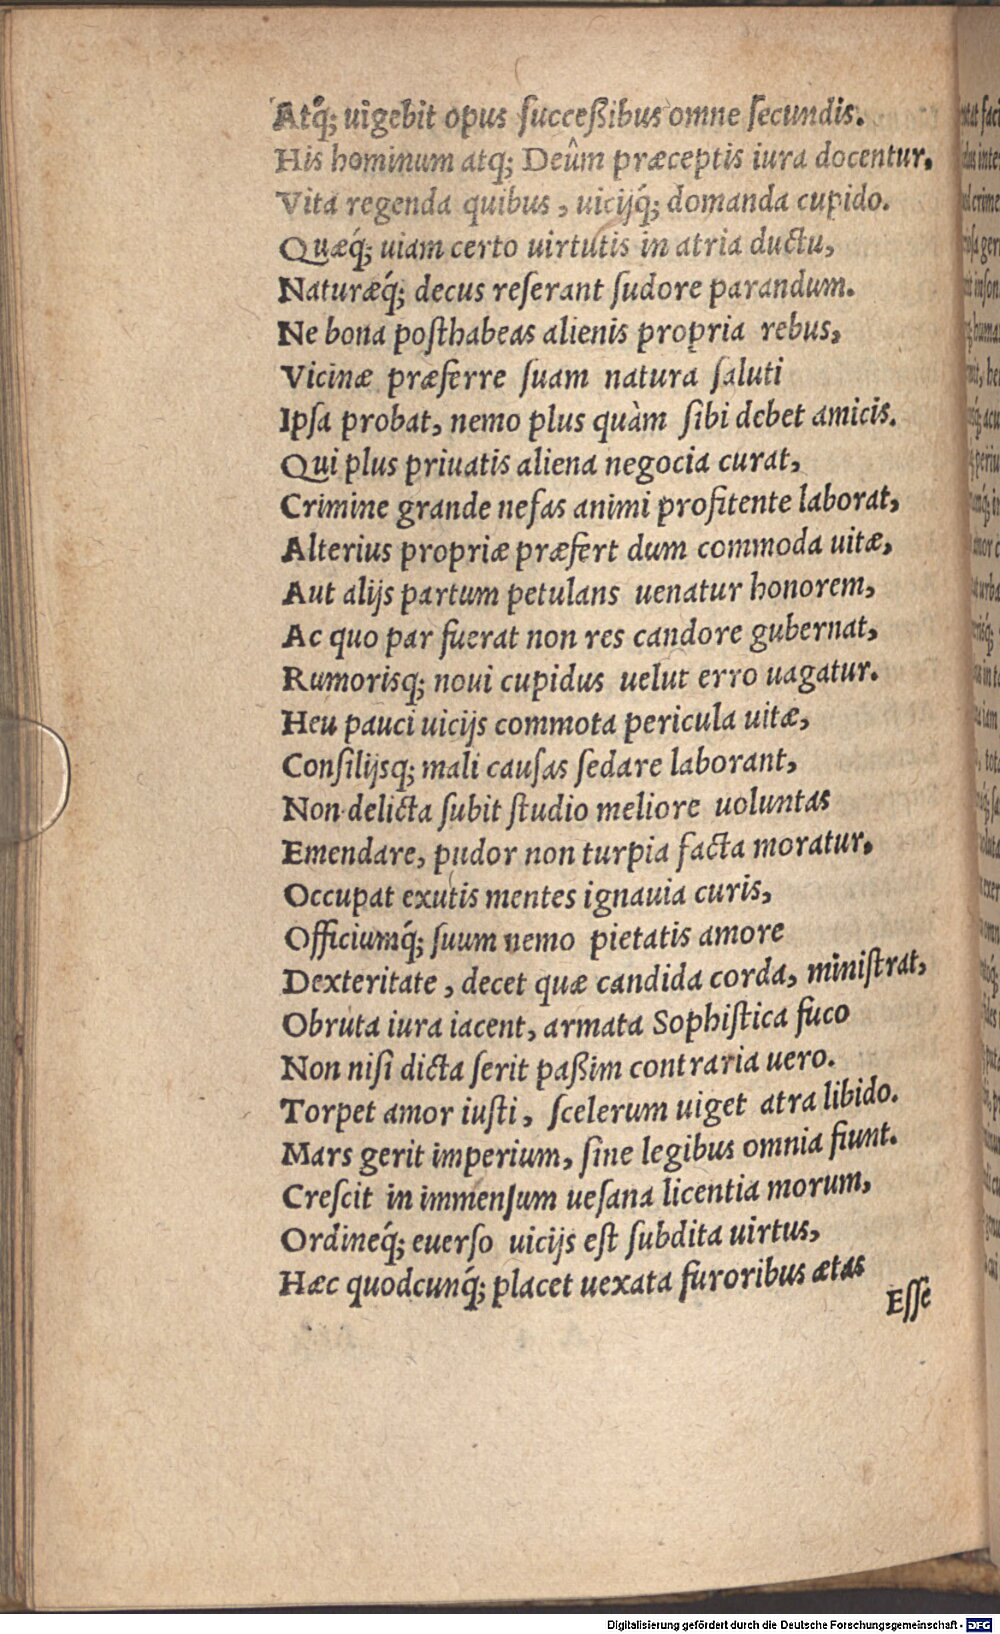 Atq́; uigebit opus ſucceßibus omne ſecundis.
His hominum atq; Deûm præceptis iura docentur,
Vita regenda quibus, uicijq́; domanda cupido.
Quæq́; uiam certo uirtutis in atria ductu,
Naturæq́; decus reſerant ſudore parandum.
Ne bona poſthabeas alienis propria rebus,
Vicinæ præferre ſuam natura ſaluti
Ipſa probat, nemo plus quàm ſibi debet amicis.
Qui plus priuatis aliena negocia curat,
Crimine grande nefas animi profitente laborat,
Alterius propriæ præfert dum commoda uitæ,
Aut alijs partum petulans uenatur honorem,
Ac quo par fuerat non res candore gubernat,
Rumorisq; noui cupidus uelut erro uagatur.
Heu pauci uicijs commota pericula uitæ,
Conſilijsq; mali cauſas ſedare laborant,
Non delicta ſubit ſtudio meliore uoluntas
Emendare, pudor non turpia facta moratur,
Occupat exutis mentes ignauia curis,
Officiumq́; ſuum nemo pietatis amore
Dexteritate, decet quæ candida corda, miniſtrat,
Obruta iura iacent, armata Sophiſtica fuco
Non niſi dicta ſerit paßim contraria uero.
Torpet amor iuſti, ſcelerum uiget atra libido.
Mars gerit imperium, ſine legibus omnia fiunt.
Creſcit in immenſum ueſana licentia morum,
Ordineq́; euerſo uicijs eſt ſubdita uirtus,
Hæc quodcunq́; placet uexata furoribus ætas
Eſſe
Digitalisierung gefördert durch die Deutsche Forschungsgemeinschaft - DFG